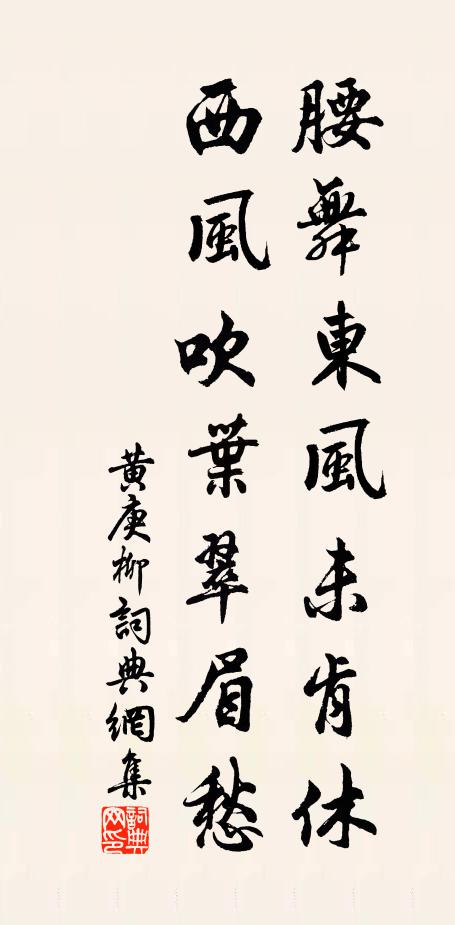 腰舞東風未肯休
西風吹葉翠眉愁
黃庚柳詞典網集
詞典网印